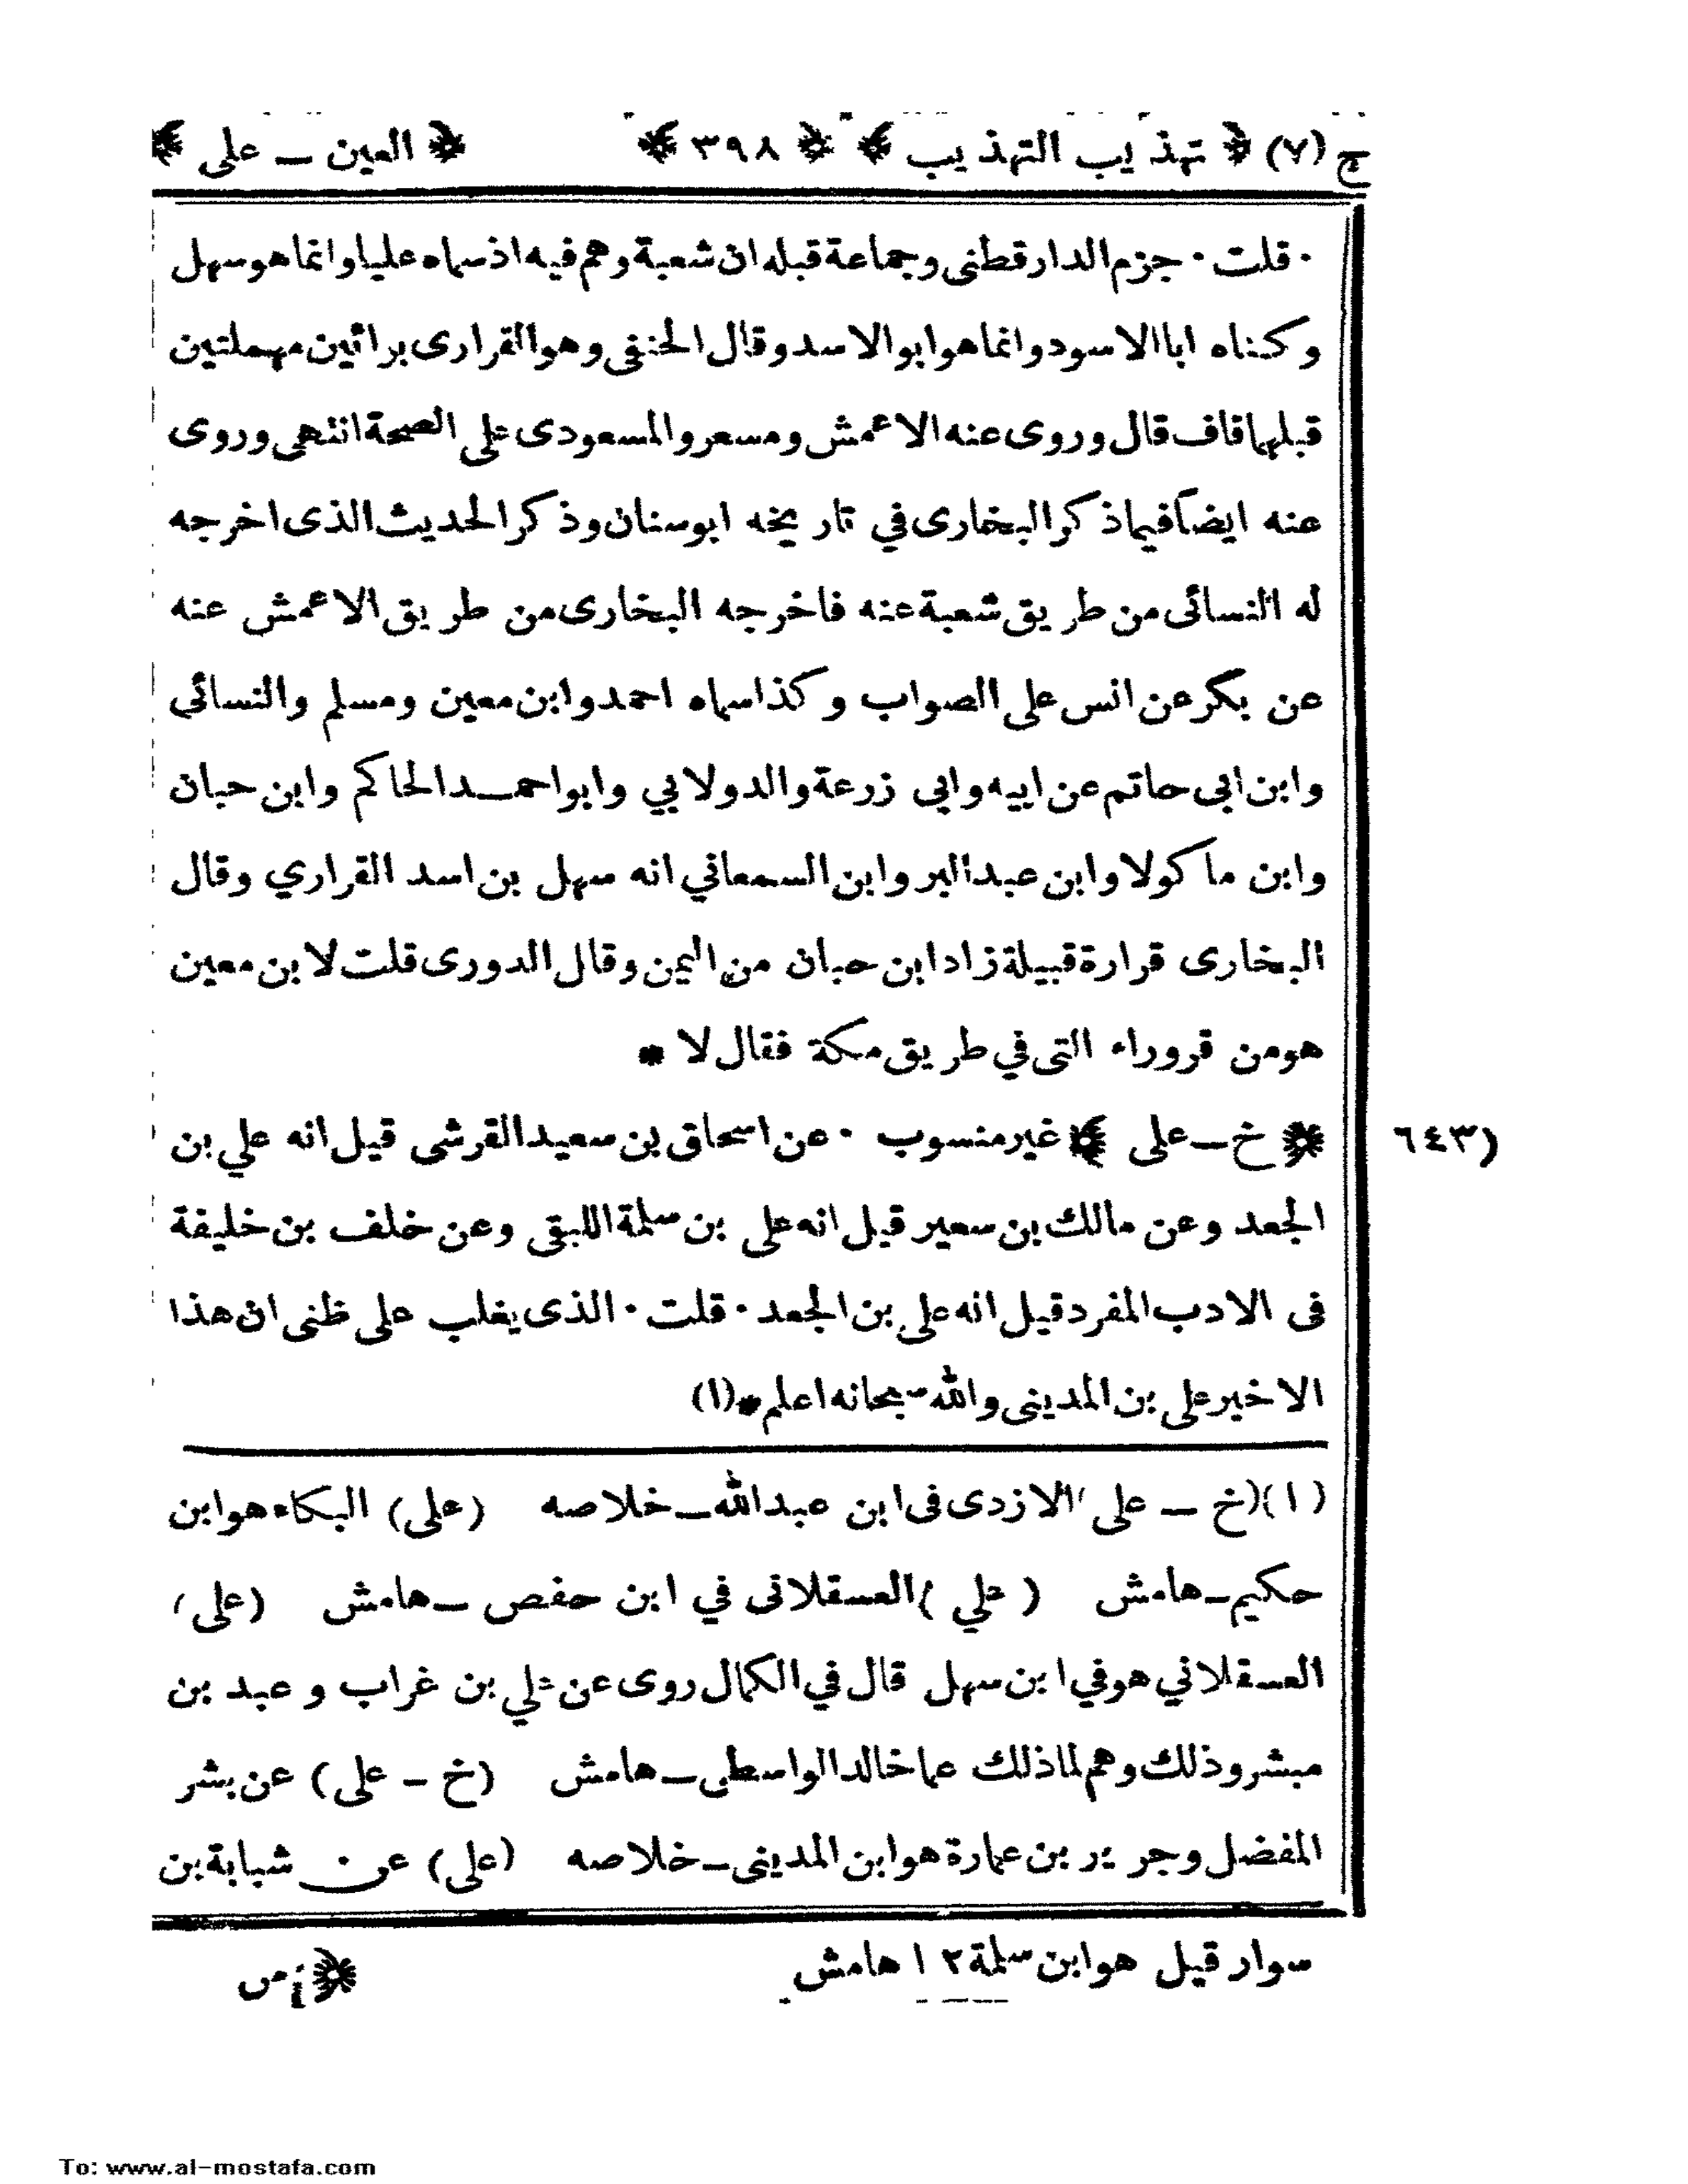 ج (٧) ﴿ تهذيب التهذيب ﴾ ﴿ ٣٩٨ ﴾ ﴿ العين ــ على ﴾
٠ قلت ٠ جزم الدارقطنى وجماعة قبله ان شعبة وهم فيه اذ سماه عليا وانما هو سهل
وكناه ابا الاسود وانما هو ابو الاسد وقال الحنفى وهو القرارى برائين مهملتين
قبلهما قاف قال وروى عنه الاعمش ومسعر والمسعودى على الصحة انتهى وروى
عنه ايضاً فيما ذكر البخارى في تاريخه ابو سنان وذكر الحديث الذى اخرجه
له النسائى من طريق شعبة عنه فاخرجه البخارى من طريق الاعمش عنه
عن بكر عن انس على الصواب وكذا سماه احمد وابن معين ومسلم والنسائى
وابن ابى حاتم عن ابيه وابى زرعة والدولابي وابو احمـــد الحاكم وابن حبان
وابن ماكولا وابن عبد البر وابن السمعاني انه سهل بن اسد القراري وقال
البخارى قرارة قبيلة زاد ابن حبان من اليمن وقال الدورى قلت لابن معين
هو من قروراء التى في طريق مكة فقال لا *
﴿ خ ــ على ﴾ غير منسوب ٠ عن اسحاق بن سعيد القرشى قيل انه علي بن
٦٤٣)
الجعد وعن مالك بن سعير قيل انه على بن سلمة اللبقى وعن خلف بن خليفة
فى الادب المفرد قيل انه على بن الجعد ٠ قلت ٠ الذى يغلب على ظنى ان هذا
الاخير على بن المدينى والله سبحانه اعلم * (١)
(١)(خ ــ على الازدى فى ابن عبد الله ــ خلاصه (على) البكاء هو ابن
حكيم ــ هامش (علي) العسقلانى في ابن حفص ــ هامش (على)
العسقلاني هو في ابن سهل قال في الكمال روى عن علي بن غراب و عبد بن
مبشر وذلك وهم لما ذلك عما خالد الواسطى ــ هامش (خ ــ على) عن بشر
المفضل وجرير بن عمارة هو ابن المدينى ــ خلاصه (على) عن شبابة بن
سوار قيل هو ابن سلمة ١٢ هامش
To: www.al-mostafa.com